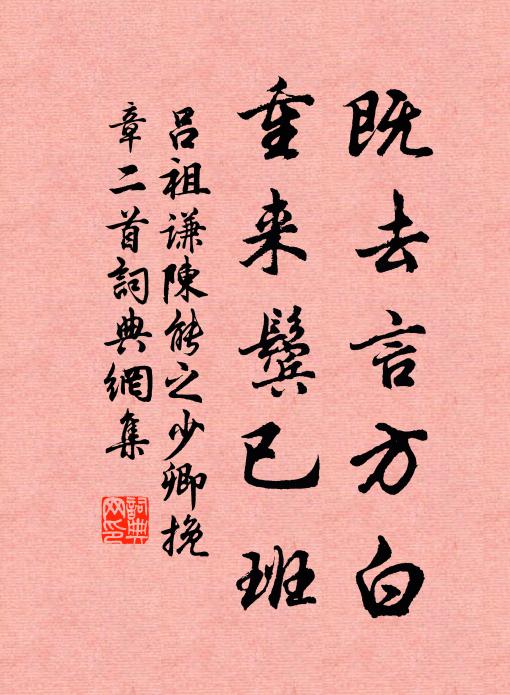 既去言方白
重来鬓已班
呂祖谦陳能之少卿挽
章二首詞典網集
詞典网印